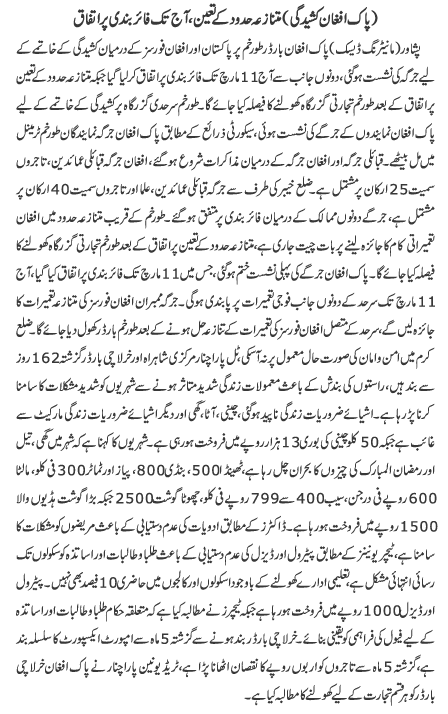 (پاک افغان کشیدگی) متنازعہ حدود کے تعین، آج تک فائر بندی پر اتفاق
پشاور (مانیٹرنگ ڈیسک) پاک افغان بارڈر طورخم پر پاکستان اور افغان فورسز کے درمیان کشیدگی کے خاتمے کے
لیے جرگہ کی نشست ہوگئی، دونوں جانب سے آج 11 مارچ تک فائر بندی پر اتفاق کر لیا گیا جبکہ متنازعہ حدود کے تعین
پر اتفاق کے بعد طورخم تجارتی گزرگاہ کھولنے کا فیصلہ کیا جائے گا۔ طورخم سرحدی گزرگاہ پر کشیدگی کے خاتمے کے لیے
پاک افغان نمایندوں کے جرگے کی نشست ہوئی، سیکورٹی ذرائع کے مطابق پاک افغان جرگہ نمایندگان طورخم ٹرمینل
میں مل بیٹھے۔ قبائلی جرگہ اور افغان جرگہ کے درمیان مذاکرات شروع ہو گئے، افغان جرگہ قبائلی عمائدین، تاجروں
سمیت 25 ارکان پر مشتمل ہے۔ ضلع خیبر کی طرف سے جرگہ قبائلی عمائدین، علما اور تاجروں سمیت 40 ارکان پر
مشتمل ہے، جرگے دونوں ممالک کے درمیان فائر بندی پر متفق ہو گئے۔ طورخم کے قریب متنازعہ حدود میں افغان
تعمیراتی کام کا جائزہ لینے پر بات چیت جاری ہے، متنازعہ حدود کے تعین پر اتفاق کے بعد طورخم تجارتی گزرگاہ کھولنے کا
فیصلہ کیا جائے گا۔ پاک افغان جرگے کی پہلی نشست ختم ہوگئی، جس میں 11 مارچ تک فائر بندی پر اتفاق کیا گیا، آج
11 مارچ تک سرحد کے دونوں جانب فوجی تعمیرات پر پابندی ہوگی۔ جرگہ ممبران افغان فورسز کی متنازعہ تعمیرات کا
جائزہ لیں گے، سرحد کے متصل افغان فورسز کی تعمیرات کے تنازعہ حل ہونے کے بعد طورخم بارڈر کھول دیا جائے گا۔ ضلع
کرم میں امن و امان کی صورت حال معمول پر نہ آسکی، ٹل پاراچنار مرکزی شاہراہ اور خرلاچی بارڈر گزشتہ 162 روز
سے بند ہیں، راستوں کی بندش کے باعث معمولات زندگی شدید متاثر ہونے سے شہریوں کو شدید مشکلات کا سامنا
کرنا پڑ رہا ہے۔ اشیائے ضروریات زندگی ناپید ہوگئی، چینی، آٹا، گھی اور دیگر اشیائے ضروریات زندگی مارکیٹ سے
غائب ہے جبکہ 50 کلو چینی کی بوری 13 ہزار روپے میں فروخت ہو رہی ہے۔ شہریوں کا کہنا ہے کہ شہر میں گھی، تیل
اور رمضان المبارک کی چیزوں کا بحران چل رہا ہے، ٹھینڈا 500، بنڈی 800، پیاز اور ٹماٹر 300 فی کلو، مالٹا
600 روپے فی درجن، سیب 400 سے 799 روپے فی کلو، چھوٹا گوشت 2500 جبکہ بڑا گوشت ہڈیوں والا
1500 روپے میں فروخت ہو رہا ہے۔ ڈاکٹرز کے مطابق ادویات کی عدم دستیابی کے باعث مریضوں کو مشکلات کا
سامنا ہے، ٹیچر یونینز کے مطابق پیٹرول اور ڈیزل کی عدم دستیابی کے باعث طلبا و طالبات اور اساتذہ کو سکولوں تک
رسائی انتہائی مشکل ہے، تعلیمی ادارے کھولنے کے باوجود اسکولوں اور کالجوں میں حاضری 10 فیصد بھی نہیں۔ پیٹرول
اور ڈیزل 1000 روپے میں فروخت ہو رہا ہے جبکہ ٹیچرز نے مطالبہ کیا ہے کہ متعلقہ حکام طلبا و طالبات اور اساتذہ
کے لیے فیول کی فراہمی کو یقینی بنائے۔ خرلاچی بارڈر بند ہونے سے گزشتہ 5 ماہ سے امپورٹ ایکسپورٹ کا سلسلہ بند
ہے، گزشتہ 5 ماہ سے تاجروں کو اربوں روپے کا نقصان اٹھانا پڑا ہے، ٹریڈ یونین پاراچنار نے پاک افغان خرلاچی
بارڈر کو ہر قسم تجارت کے لیے کھولنے کا مطالبہ کیا ہے۔